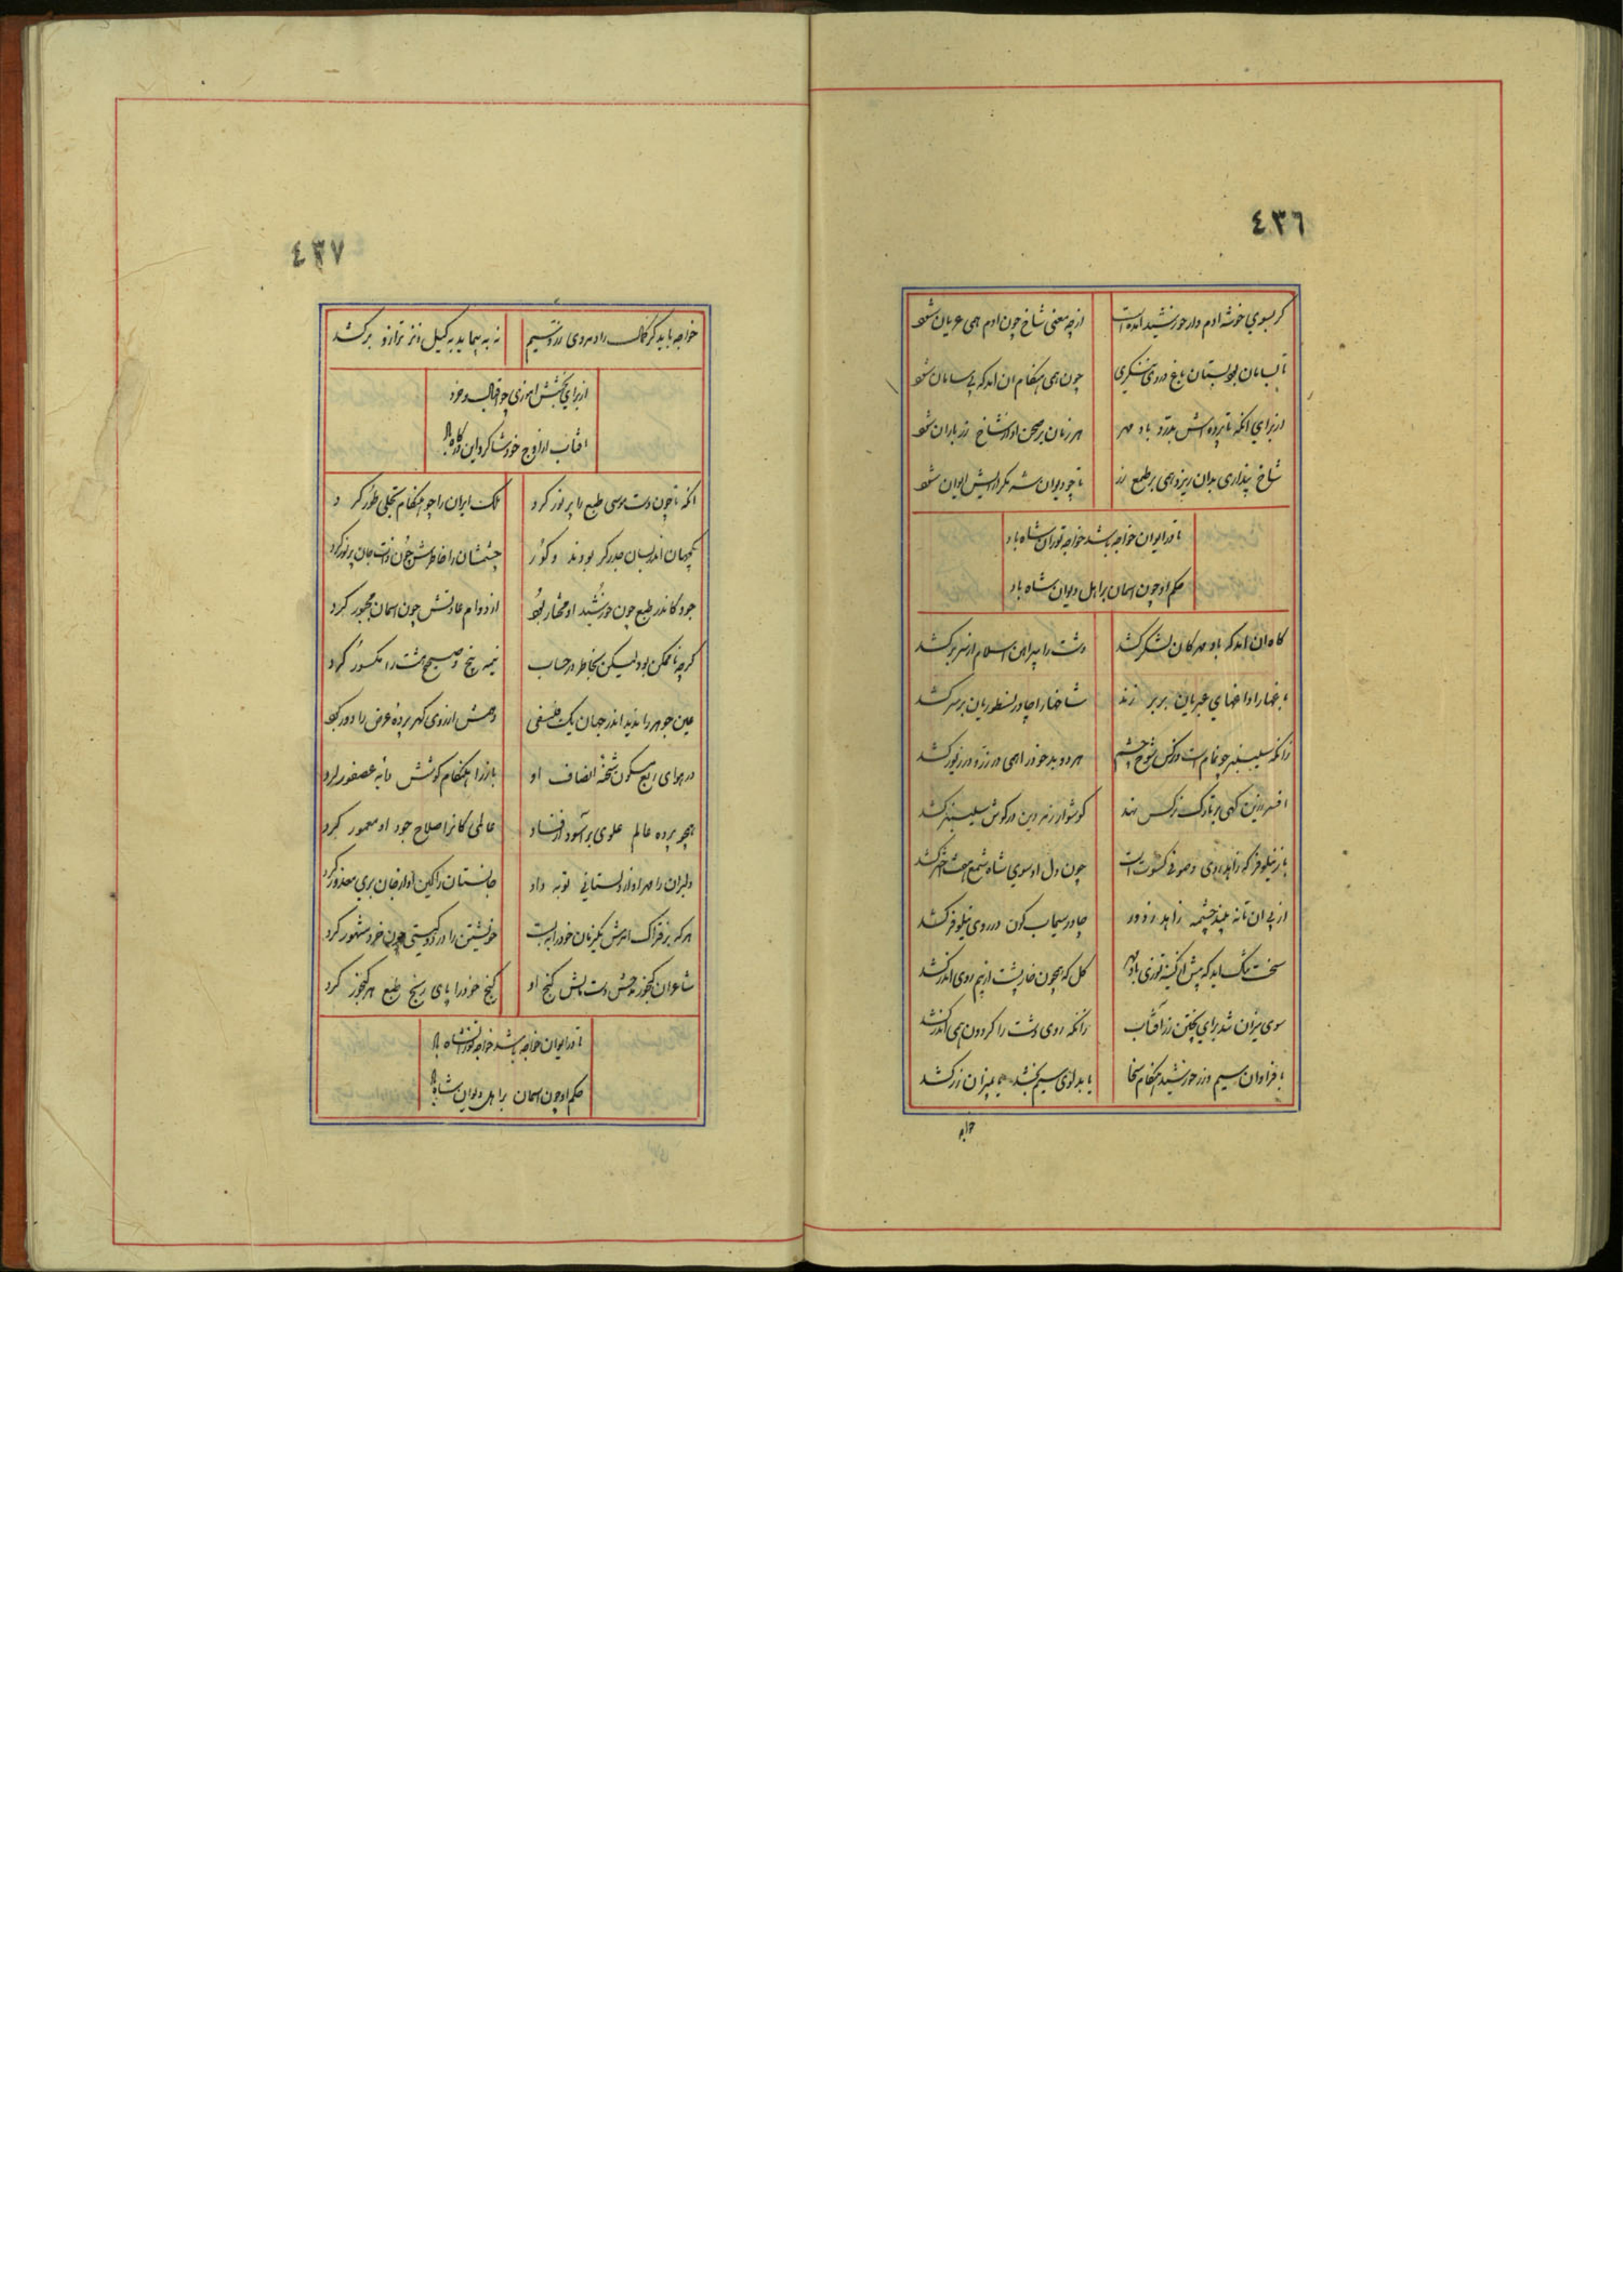 ٤٣٦
کر بسوی خوشه ادم وار خورشید امده است
از چه معنی شاخ چون ادم همی عریان شود
تا بسامان بود بستان باغ در وی ننگری
چون همی هنگام ان امد که بی سامان شود
از برای انکه تا پرده اش بدرد باد مهر
هر زمان بر صحن او از شاخ زر باران شود
شاخ پنداری بدان ریزد همی بر طمع زر
تا چو دیوان شه مکر ایوان شود
تا در ایوان خواجه باشد خواجه توران شاه باد
حکم او چون اسمان بر اهل دیوان شاه باد
کاه ان امد که باد مهرکان لشکر کشد
دست را پیراهن اسلام از سر بر کشد
باغها را داغهای عبریان بر بر زند
شاخها را چادر نسطوریان بر سر کشد
زانکه سیسنبر چو نمام است و نرکس شوخ چشم
هر دو بد خو را همی در زر و در زیور کشد
افسر زرین کهی بر تارک نرکس نهد
کوشوار زمردین در کوش سیسنبر کشد
باز نیلوفر که زاهد روی و صوفی کسوت است
چون دل او سوی شاه شمع هفت اختر کشد
از پی ان تا نه بیند چشمه زاهد ز دور
چادر سیماب کون در روی نیلوفر کشد
سخت تنک اید که پیش از کینه توزی باد مهر
کل که همچون خار پشت از بیم روی اندر کشد
سوی میزان شد برای پختن زر افتاب
زانکه روی دشت را کردون همی اندر کشد
با فراوان سیم و زر خورشید هنکام سخا
یا بدلوی سیم بخشد یا بمیزان زر کشد
خواجه
٤٣٧
خواجه باید کز کمال راد مردی زر و سیم
نه به پیماید به کیل و نز ترازو بر کشد
از برای بخشش اموزی چو اقبال و خرد
افتاب از اوج خود شاکرد این درکاه باد
انکه تا چون دست موسی طبع را پر نور کرد
ملک ایران را چو هنکام تجلی طور کرد
همکنان اندر بیان جذر کر بودند و کور
چشمشان را خاطرش چون ذات جان پر نور کرد
جود کاندر طبع چون خورشید او مختار بود
از دوام عادتش چون اسمان مجبور کرد
کرچه ناممکن بود لیکن بخاطر در حساب
نیمه پنج و صحیح هشت را مکسور کرد
عین جوهر را ندید اندر جهان یک فلسفی
وهمش از روی کهر پرده عرض را دور کرد
در هوای ربع مسکون شحنه انصاف او
باز را هنکام کوشش دایه عصفور کرد
همچو پرده عالم علوی بر اسود از فساد
عالمی کانرا صلاح جود او معمور کرد
دلبران را مهر او از دلستانی توبه داد
جانستان را کین او از جان بری معذور کرد
هر که بر فتراک امرش یکزمان خود را ببست
خویشتن را در دو کیتی چون خرد مشهور کرد
شاعران کنجور مدحش دست مالش کنج او
کنج خود را پای رنج طبع هر کنجور کرد
تا در ایوان خواجه باشد خواجه توران شاه باد
حکم او چون اسمان بر اهل دیوان شاه باد